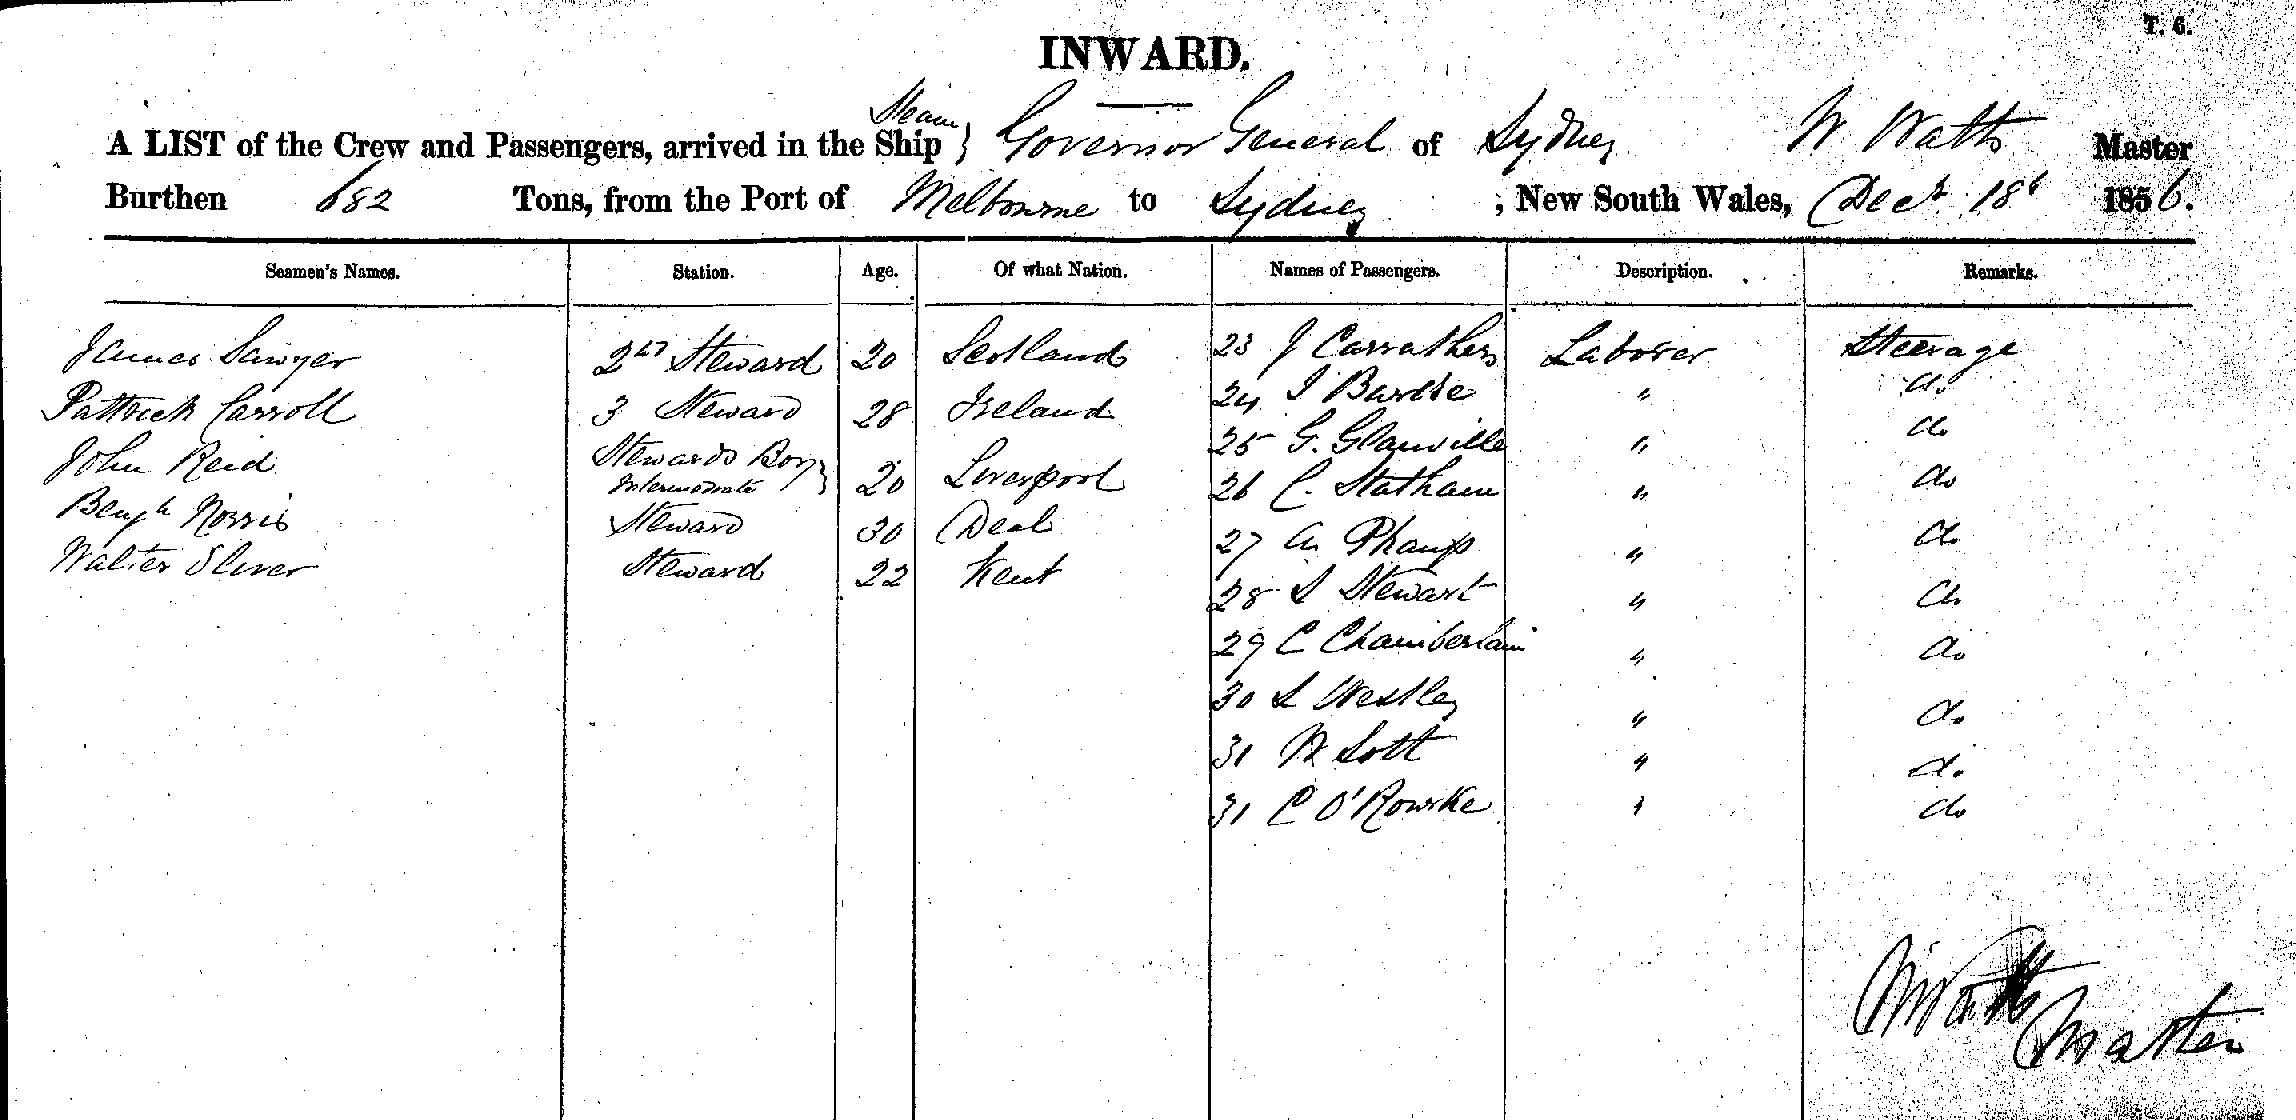 T. 6.
INWARD.
A LIST of the Crew and Passengers, arrived in the Steam Ship } Governor General of Sydney W Watts Master
Burthen 682 Tons, from the Port of Melbourne to Sydney ; New South Wales, Decr 18t 1856.
Seamen's Names. Station. Age. Of what Nation. Names of Passengers. Description. Remarks.
James Sawyer 2nd Steward 20 Scotland 23 J Carrathers Laborer Steerage
Pattrick Carroll 3 Steward 28 Ireland 24 I " do
John Reid Stewards Boy } 20 Liverpool 25 G. Glanville " do
Intermediate
Benjn Norris Steward 30 Deal 26 C. Statham " do
Walter Oliver Steward 22 Kent 27 A Phaup " do
28 S Stewart " do
29 C Chamberlain " do
30 S Westley " do
31 W Sott " do
31 C O'Rowrke " do
W Watts
Master